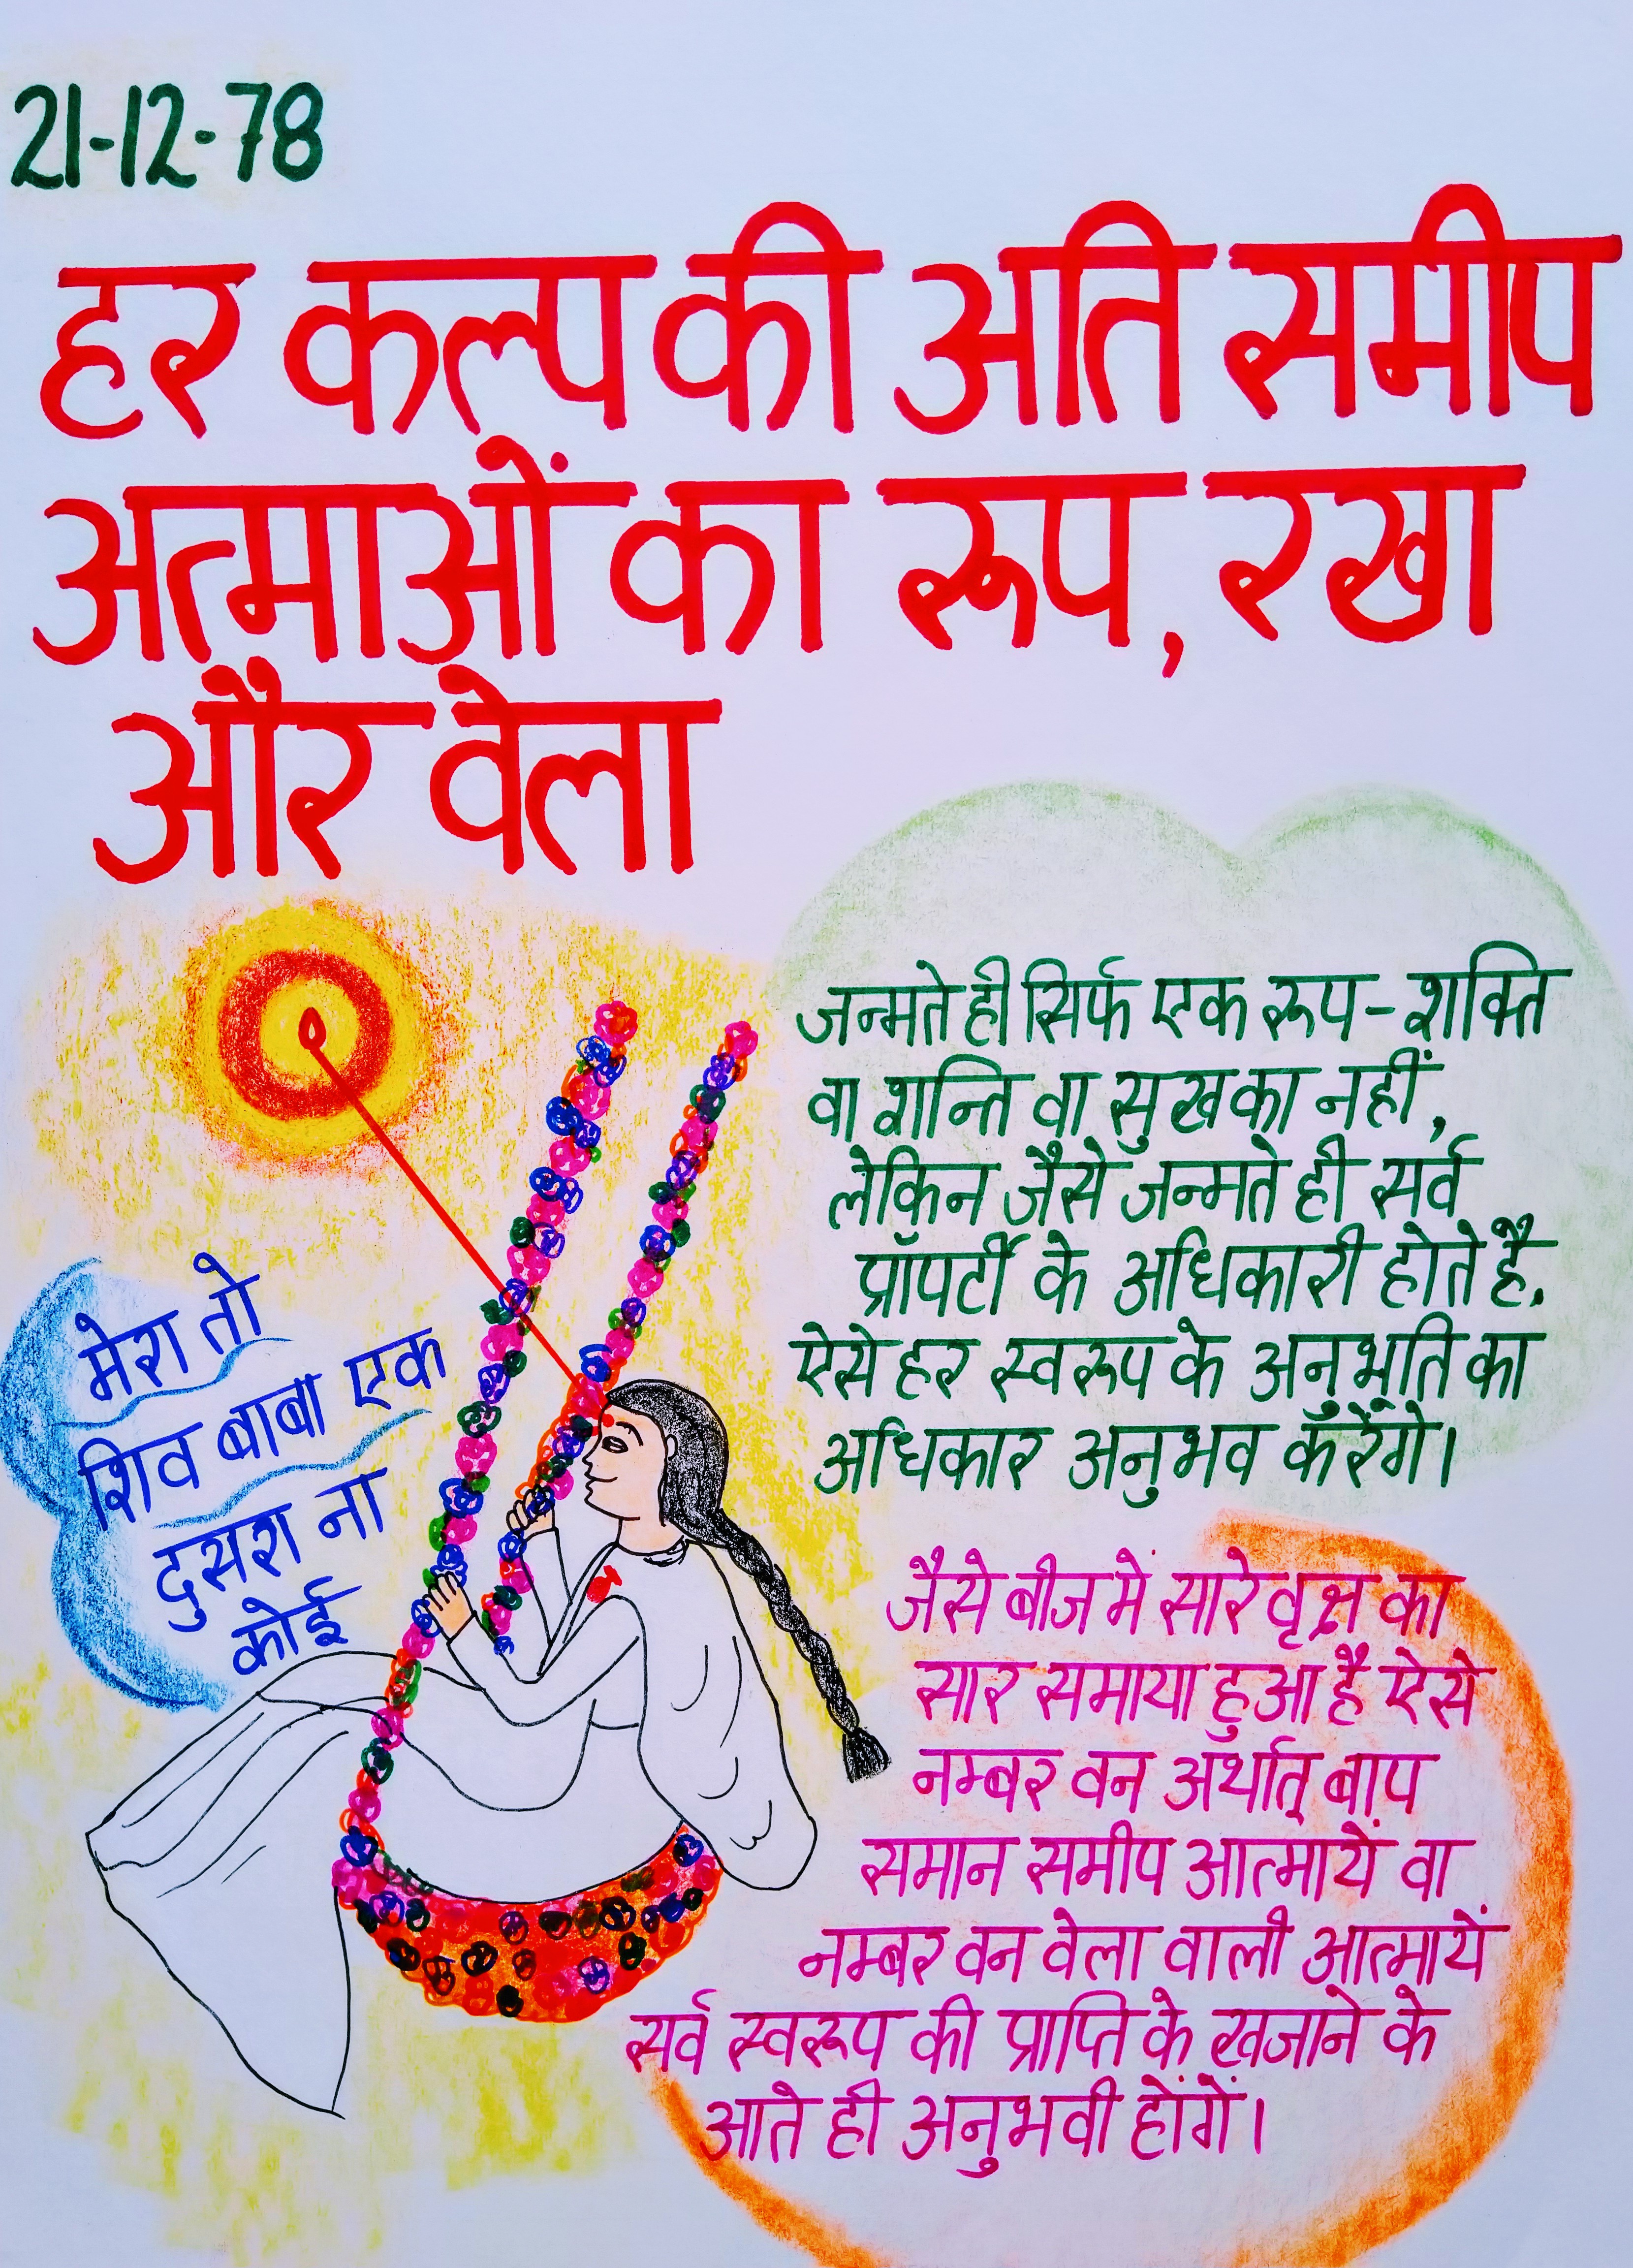 21-12-78
हर कल्प की अति समीप
अत्माओं का रूप, रखा
और वेला
जन्मते ही सिर्फ एक रूप-शक्ति
वा शन्ति वा सुख का नहीं,
लेकिन जैसे जन्मते ही सर्व
प्रॉपर्टी के अधिकारी होते है.
ऐसे हर स्वरूप के अनुभूति का
अधिकार अनुभव करेंगे।
मेरा तो
शिव बाबा एक
दुसरा ना
कोई
जैसे बीज में सारे वृक्ष का
सार समाया हुआ है ऐसे
नम्बर वन अर्थात् बाप
समान समीप आत्मायें वा
नम्बर वन वेला वाली आत्मायें
सर्व स्वरूप की प्राप्ति के खजाने के
आते ही अनुभवी होंगें।